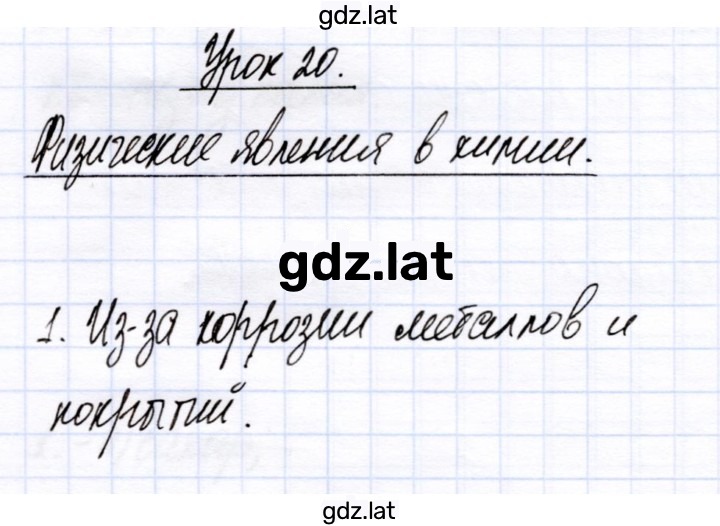 gdz.lat
Урок 20.
Физические явления в химии.
gdz.lat
1. Из-за коррозии металлов и
покрытий.
gdz.lat